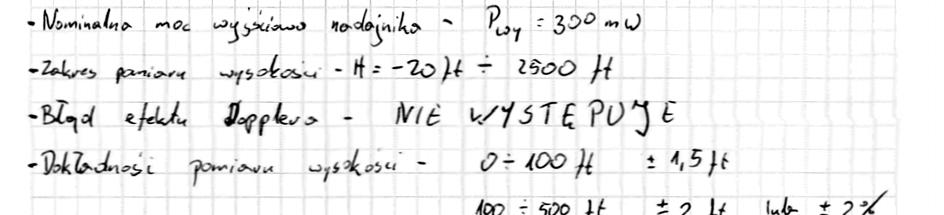 - Nominalna moc wyjściowa nadajnika - Pwy = 300 mW
- Zakres pomiaru wysokości - H = -20 ft ÷ 2500 ft
- Błąd efektu Dopplera - NIE WYSTĘPUJE
- Dokładności pomiaru wysokości - 0 ÷ 100 ft ± 1,5 ft
100 ÷ 500 ft ± 2 ft lub ± 2%